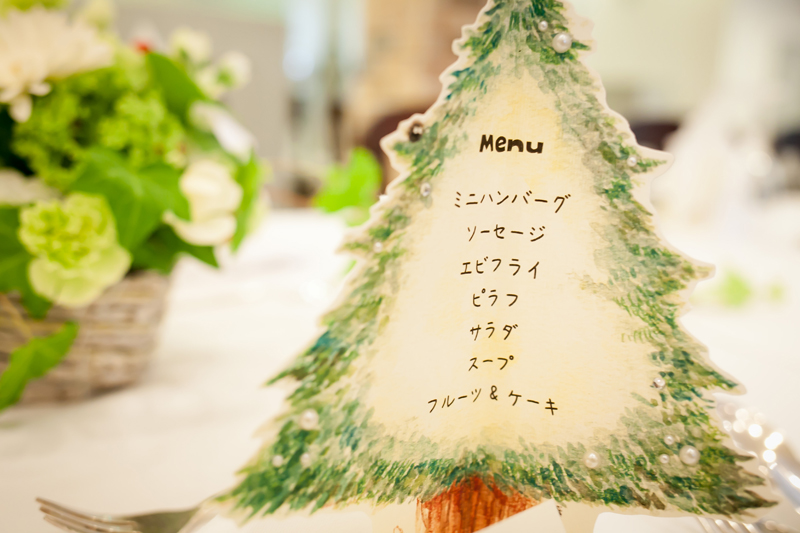 Menu
ミニハンバーグ
ソーセージ
エビフライ
ピラフ
サラダ
スープ
フルーツ & ケーキ